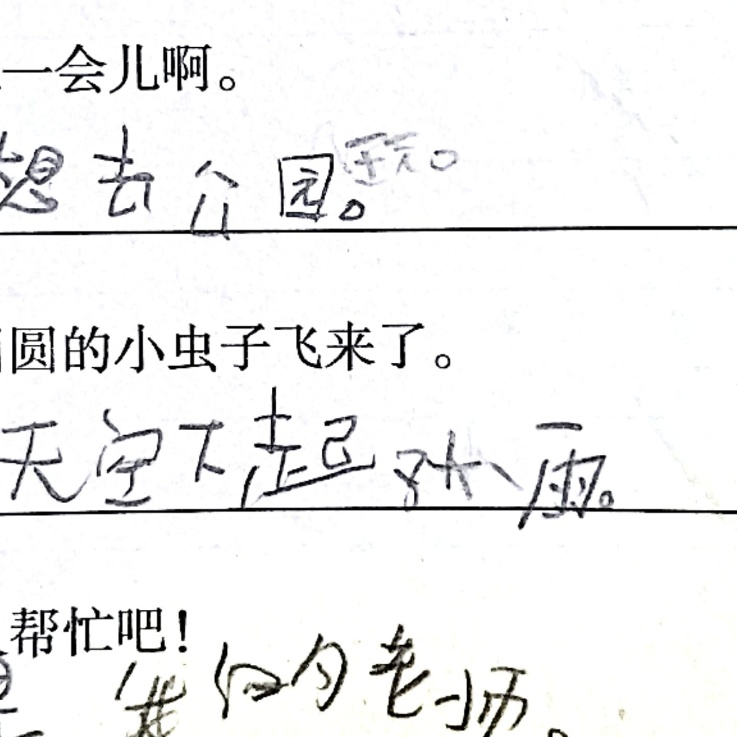 一会儿啊。
想去公园。玩。
圆的小虫子飞来了。
天空下起小雨。
帮忙吧！
我们的老师。